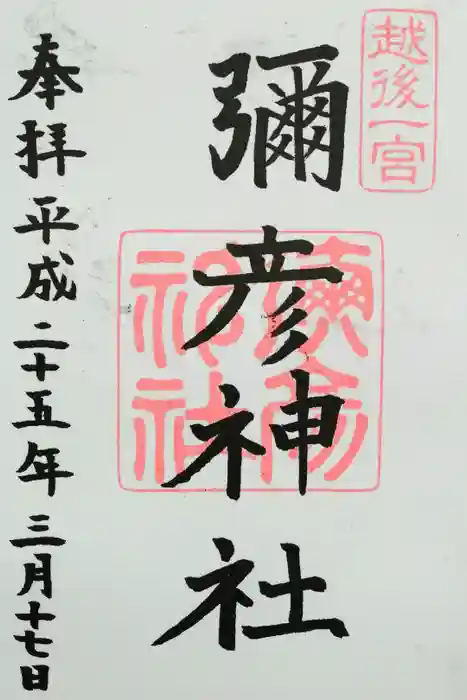 越後一宮
彌彦神社
彌彦神社
奉拝 平成二十五年三月十七日